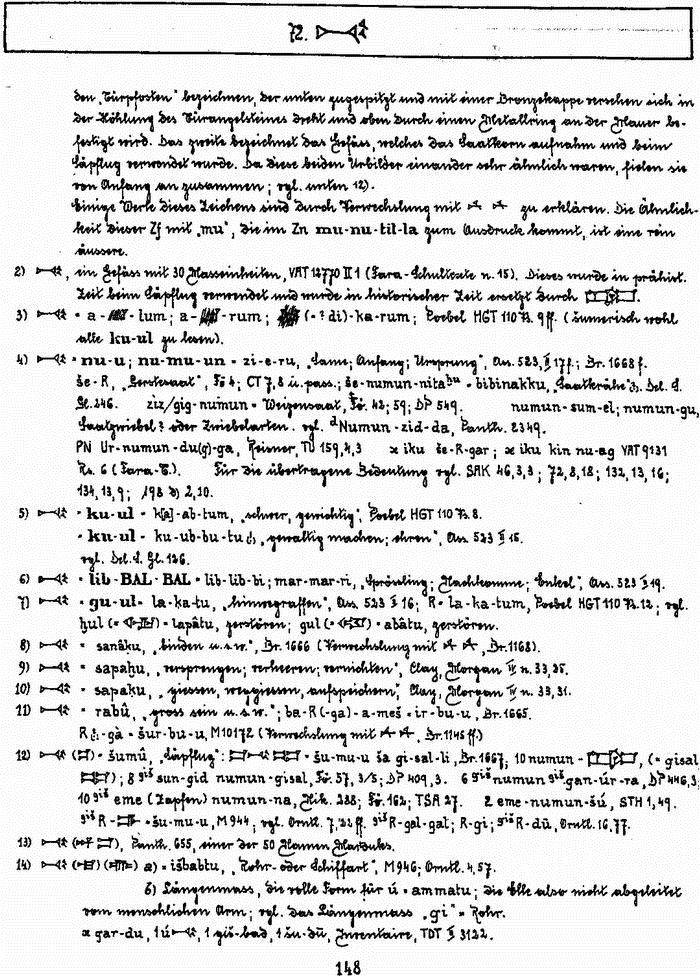 72.
den „Türpfosten" bezeichnen, der unten zugespitzt und mit einer Bronzekappe versehen sich in
der Höhlung des Türangelsteines dreht und oben durch einen Metallring an der Mauer be-
festigt wird. Das zweite bezeichnet das Gefäss, welches das Saatkorn aufnahm und beim
Säpflug verwendet wurde. Da diese beiden Urbilder einander sehr ähnlich waren, fielen sie
von Anfang an zusammen; vgl. unten 12).
Einige Werte dieses Zeichens sind durch Verwechslung mit zu erklären. Die Ähnlich-
keit dieser Zf mit „mu", die im Zn mu-nu-til-la zum Ausdruck kommt, ist eine rein
äussere.
2) , ein Gefäss mit 30 Masseinheiten, VAT 12770 II 1 (Fara-Schultexte n. 15). Dieses wurde in prähist.
Zeit beim Säpflug verwendet und wurde in historischer Zeit ersetzt durch
3) = a- -lum; a- -rum; (=? di)-ka-rum; Poebel HGT 110 Rs. 9 ff. (sumerisch wohl
alle ku-ul zu lesen).
4) = nu-u; nu-mu-un = zi-e-ru, „Same; Anfang; Ursprung", Ass. 523, II 17 f.; Br. 1668 f.
še-R, „Gerstesaat", Fö 4; CT 7, 8 u. pass.; še-numun-nita hu = bibinakku, „Saatkrähe", Del. S.
Gl. 246. ziz/gig-numun = Weizensaat, Fö. 42; 59; DP 549. numun-sum-el; numun-gu,
Saatzwiebel? oder Zwiebelarten. vgl. dNumun-zid-da, Panth. 2349.
PN Ur-numun-du(g)-ga, Reisner, TU 159, 4, 3 x iku še-R-gar; x iku kin nu-ag VAT 9131
Rs. 6 (Fara-T.). Für die übertragene Bedeutung vgl. SAK 46, 3, 3; 72, 8, 18; 132, 13, 16;
134, 13, 9; 198 d) 2, 10.
5) = ku-ul = k[a]-ab-tum, „schwer, gewichtig", Poebel HGT 110 Rs. 8.
= ku-ul = ku-ub-bu-tu, „gewaltig machen; ehren", Ass. 523 II 15.
vgl. Del. S. Gl. 126.
6) = lib-BAL-BAL = lib-lib-bi; mar-mar-ri, „Sprössling; Nachkomme; Enkel", Ass. 523 II 19.
7) = gu-ul = la-ka-tu, „hinwegraffen", Ass. 523 II 16; R = la-ka-tum, Poebel HGT 110 Rs. 12; vgl.
ḫul (= ) = lapâtu, zerstören; gul (= ) = abâtu, zerstören.
8) = sanâku, „binden u.s.w.", Br. 1666 (Verwechslung mit , Br. 1168).
9) = sapaḫu, „versprengen; verheeren; vernichten", Clay, Morgan IV n. 33, 35.
10) = sapaḳu, „giessen, weggiessen, aufspeichern", Clay, Morgan IV n. 33, 31.
11) = rabû, „gross sein u.s.w."; ba-R(-ga)-a-meš = ir-bu-u, Br. 1665.
R -gà = šur-bu-u, M 10172 (Verwechslung mit , Br. 1145 ff.)
12) ( ) = šumû, „Säpflug": = šu-mu-u ša gi-sal-li, Br. 1667; 10 numun- , (= gisal,
); 8 giš sun-gid numun-gisal, Fö. 57, 3/5; DP 409, 3. 6 giš numun giš gan-úr-ra, DP 446, 3;
10 giš eme (Zapfen) numun-na, Nik. 288; Fö. 162; TSA 27. 2 eme-numun-šú, STH 1, 49.
giš R- = šu-mu-u, M 944; vgl. Orntl. 7, 22 ff. giš R-gal-gal; R-gi; giš R-dū, Orntl. 16, 77.
13) ( ), Panth. 655, einer der 50 Namen Marduks.
14) ( ) ( ) a) = išbabtu, „Rohr- oder Schilfart", M 946; Orntl. 4, 57.
b) Längenmass, die volle Form für ú = ammatu; die Elle also nicht abgeleitet
vom menschlichen Arm; vgl. das Längenmass „gi" = Rohr.
x gar-du, 1 ú , 1 giš-bad, 1 šu-dū, Inventaire, TDT II 3122.
148